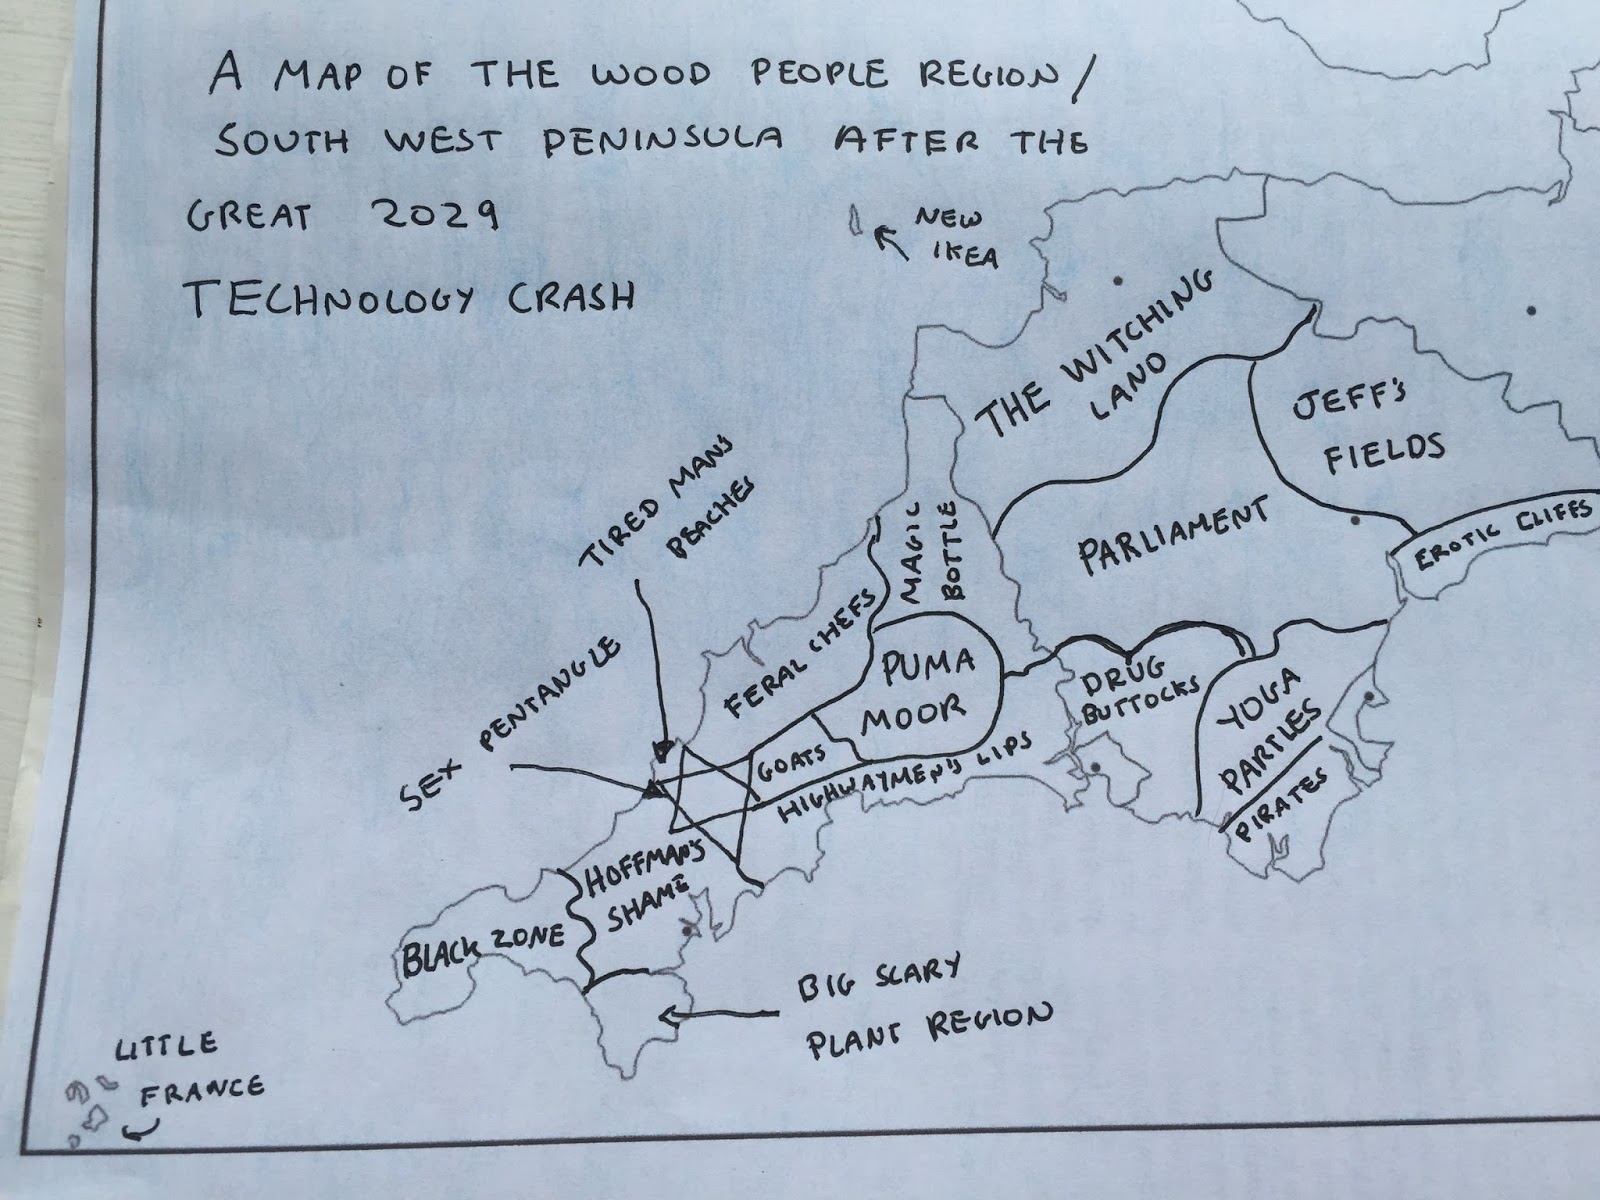 A MAP OF THE WOOD PEOPLE REGION/
SOUTH WEST PENINSULA AFTER THE
GREAT 2029
TECHNOLOGY CRASH
NEW
IKEA
THE WITCHING
LAND
JEFF'S
FIELDS
TIRED MANS
PEACHES
MAGIC
BOTTLE
PARLIAMENT
EROTIC CLIFFS
FERAL CHEFS
PUMA
MOOR
DRUG
BUTTOCKS
YOGA
PARTLES
PIRATES
SEX PENTANGLE
GOATS
HIGHWAYMEN'S LIPS
HOFFMAN'S
SHAME
BLACK ZONE
BIG SCARY
PLANT REGION
LITTLE
FRANCE